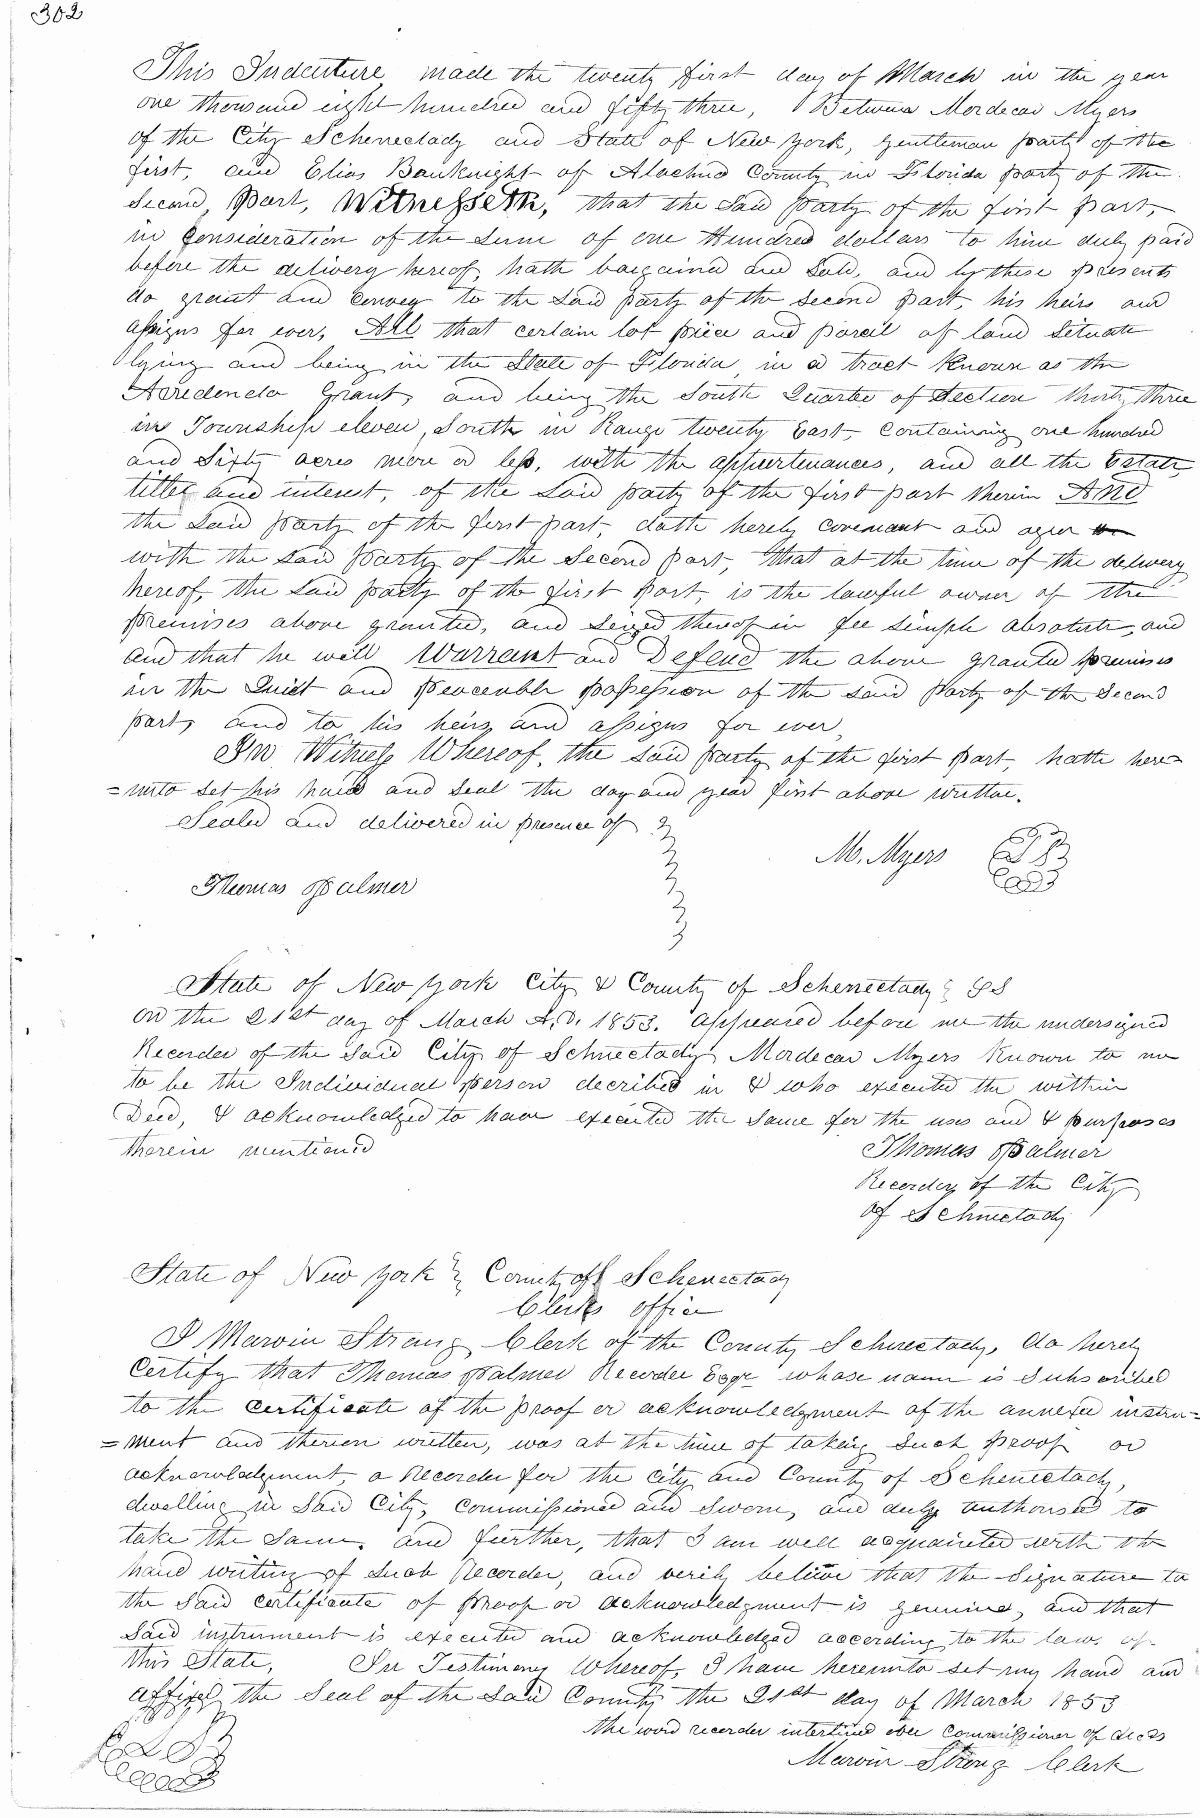 302
This Indenture, made the twenty first day of March in the year
one thousand eight hundred and fifty three, Between Mordecai Myers
of the City Schenectady and State of New York, gentleman party of the
first, and Elias Bauknight of Alachua County in Florida party of the
Second part, Witnesseth, that the said party of the first part,
in Consideration of the sum of one Hundred dollars to him duly paid
before the delivery hereof, hath bargained and sold, and by these presents
do grant and convey to the said party of the second part, his heirs and
assigns for ever, All that certain lot piece and parcel of land situate
lying and being in the State of Florida, in a tract known as the
Arredondo Grant, and being the South Quarter of Section thirty three
in Township eleven, South in Range twenty East, Containing one hundred
and Sixty acres more or less, with the appurtenances, and all the Estate,
title and interest, of the said party of the first part therein And
the said party of the first part, doth hereby covenant and agree
with the said party of the second part, that at the time of the delivery
hereof, the said party of the first part, is the lawful owner of the
premises above granted, and seized thereof in fee simple absolute, and
and that he will Warrant and Defend the above granted premises
in the Quiet and peaceable possession of the said party of the Second
part, and to his heirs and assigns for ever,
In Witness Whereof, the said party of the first part, hath here=
=unto set his hand and seal the day and year first above written.
Sealed and delivered in presence of
M. Myers
Thomas Palmer
State of New York City & County of Schenectady SS
on the 21st day of March A.D. 1853. appeared before me the undersigned
Recorder of the said City of Schnectady Mordecai Myers known to me
to be the Individual person decribed in & who executed the within
Deed, & acknowledged to have executed the same for the uses and & purposes
therein mentioned
Thomas Palmer
Recorder of the City
of Schnectady
State of New York County of Schenectady
Clerks office
I Marvin Strong Clerk of the County Schnectady, do hereby
Certify that Thomas Palmer Recorder Esqr whose name is subscribed
to the certificate of the proof or acknowledgment of the annexed instru=
=ment and thereon written, was at the time of taking such proof or
acknowledgment, a Recorder for the city and County of Schenectady,
dwelling in said City, commissioned and sworn, and duly authorised to
take the same, and further, that I am well acquainted with the
hand writing of such Recorder, and verily believe that the signature to
the said certificate of proof or acknowledgment is genuine, and that
said instrument is executed and acknowledged according to the laws of
this State, In Testimony Whereof, I have hereunto set my hand and
affixed the Seal of the said County the 21st day of March 1853
the word recorder interlined over commissioner of deeds
Marvin Strong Clerk